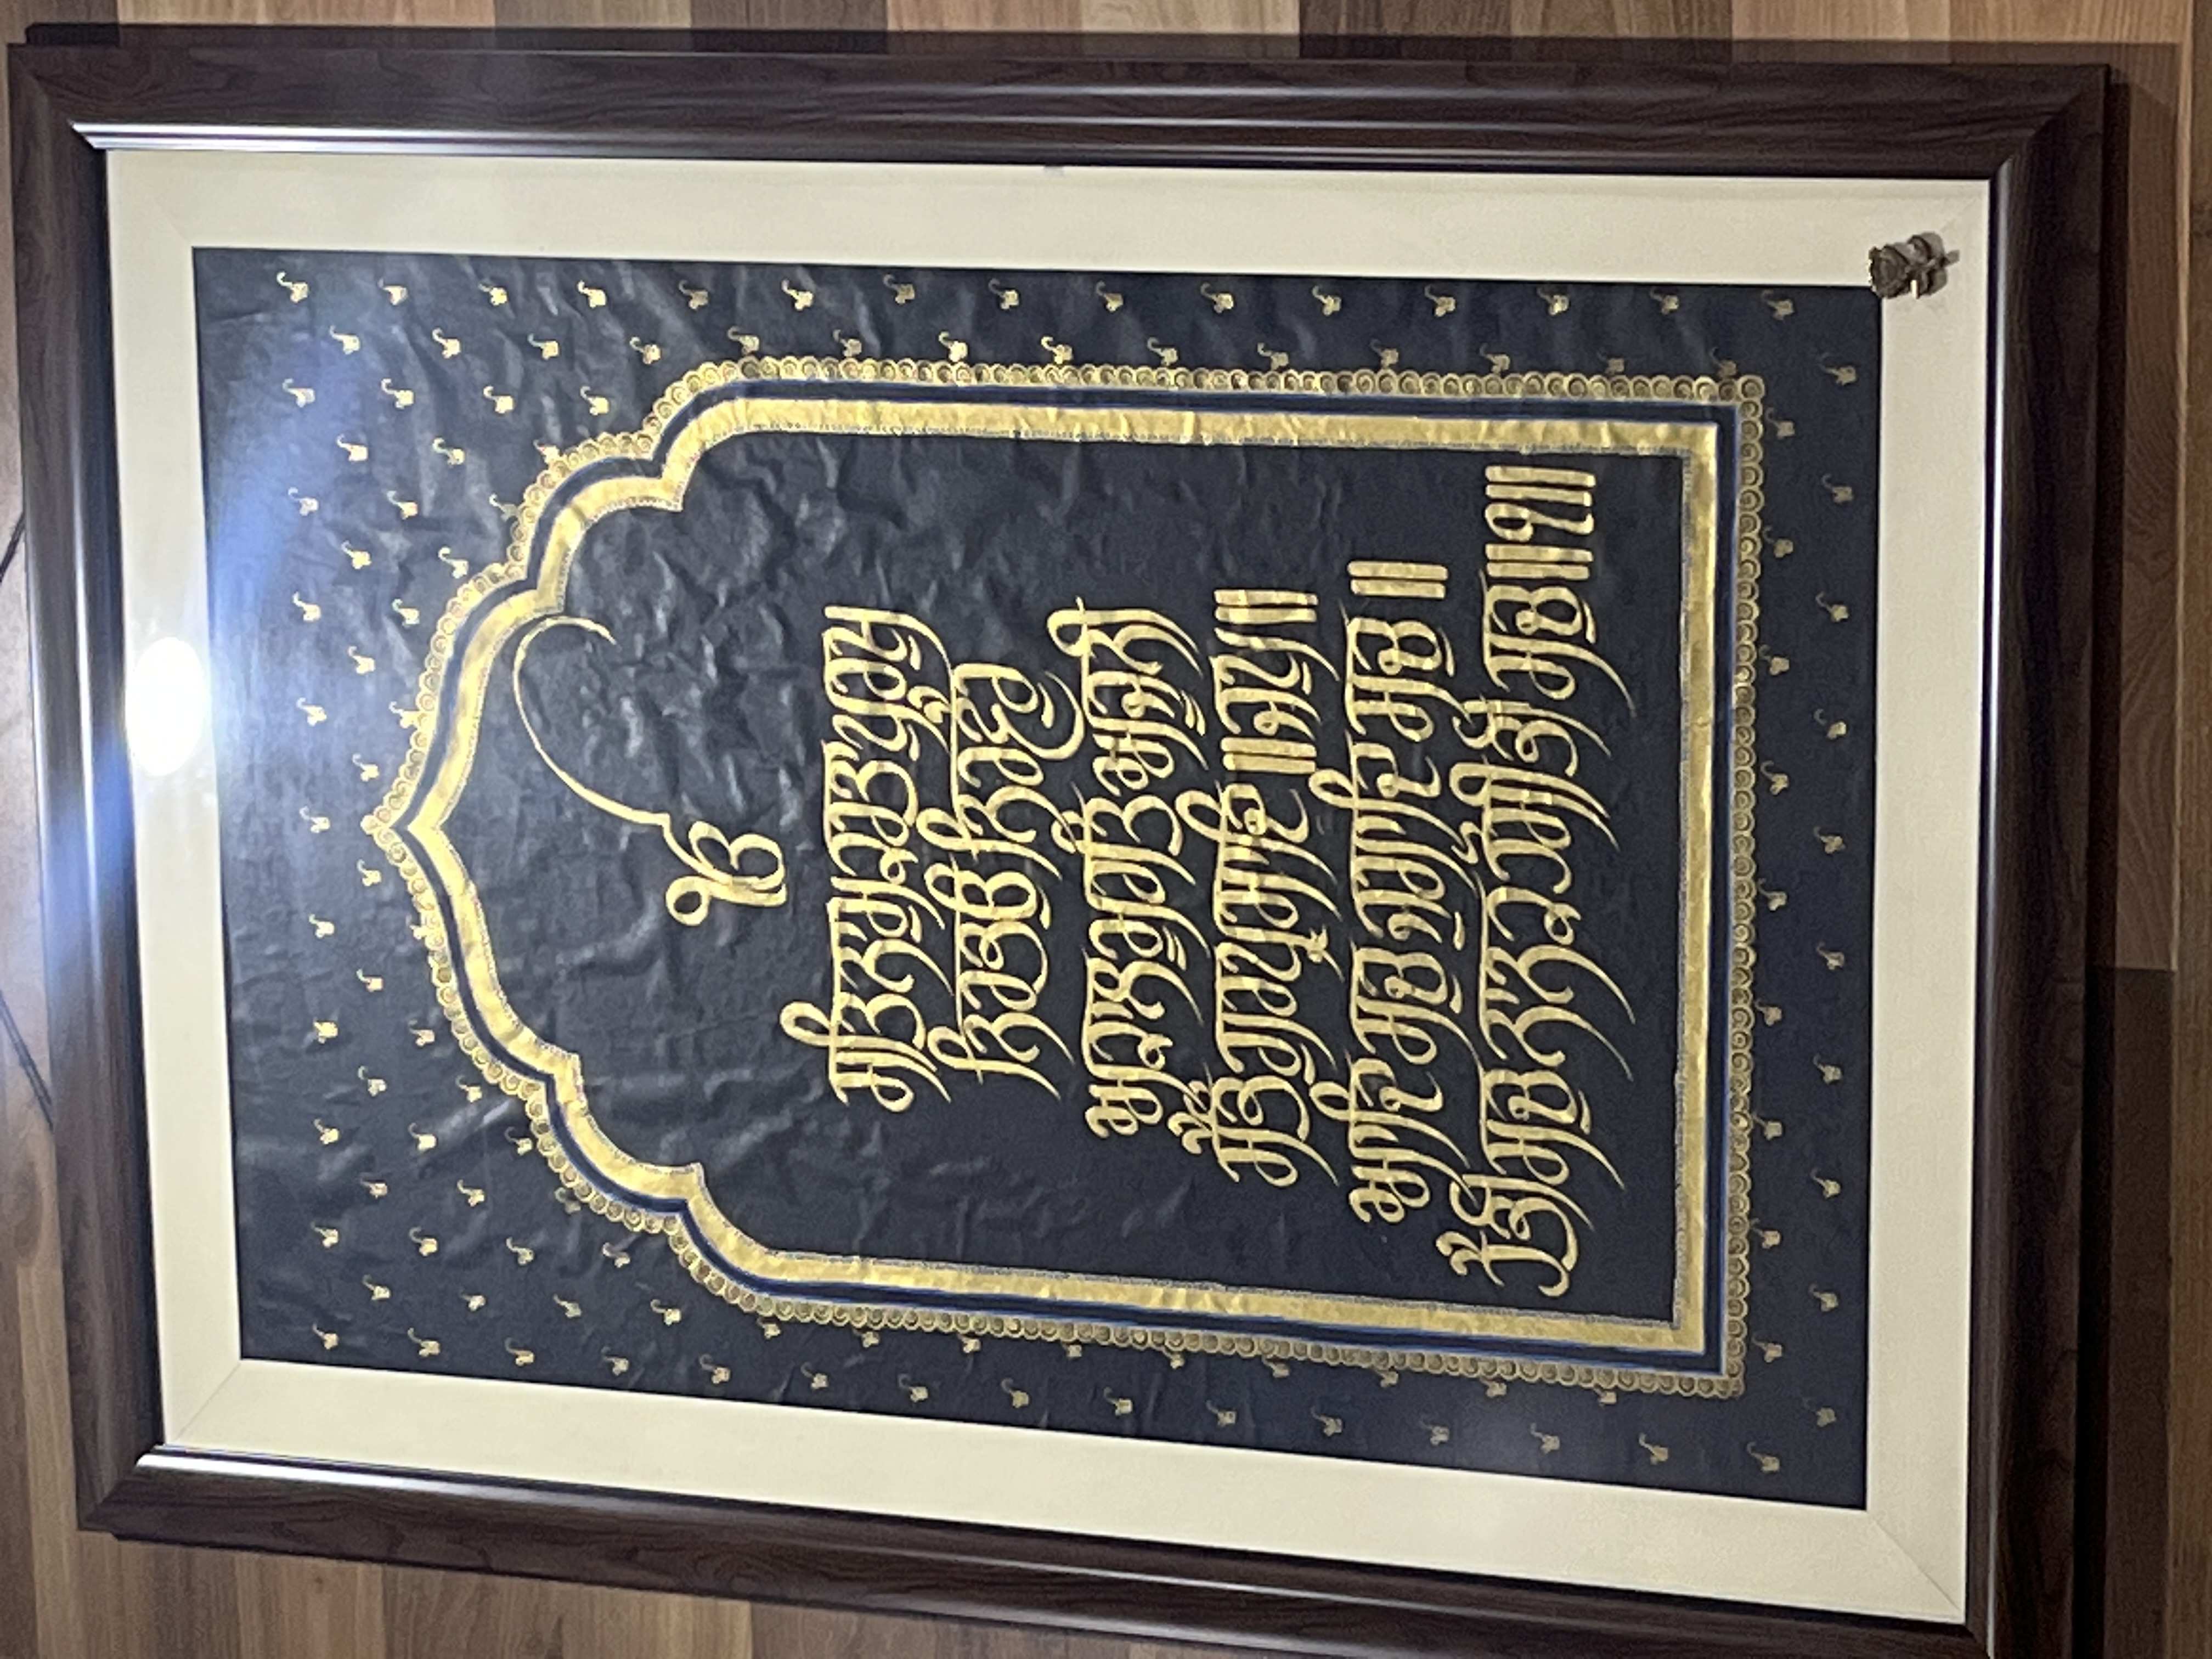 ੴ
ਸਤਿਨਾਮੁ ਕਰਤਾ ਪੁਰਖੁ
ਨਿਰਭਉ ਨਿਰਵੈਰੁ
ਅਕਾਲ ਮੂਰਤਿ ਅਜੂਨੀ
ਸੈਭੰ ਗੁਰਪ੍ਰਸਾਦਿ ॥ ਜਪੁ ॥
ਆਦਿ ਸਚੁ ਜੁਗਾਦਿ ਸਚੁ ॥
ਹੈ ਭੀ ਸਚੁ ਨਾਨਕ ਹੋਸੀ ਭੀ ਸਚੁ ॥੧॥